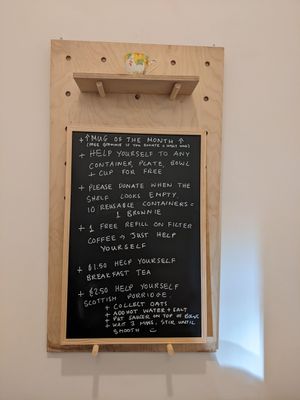 + ↑ MUG OF THE MONTH ↑
(FREE BROWNIE IF YOU DONATE A GREAT MUG)
+ HELP YOURSELF TO ANY
CONTAINER, PLATE, BOWL
+ CUP FOR FREE
+ PLEASE DONATE WHEN THE
SHELF LOOKS EMPTY
10 REUSABLE CONTAINERS =
1 BROWNIE
+ 1 FREE REFILL ON FILTER
COFFEE → JUST HELP
YOURSELF
+ $1.50 HELP YOURSELF
BREAKFAST TEA
+ $2.50 HELP YOURSELF
SCOTTISH PORRIDGE.
+ COLLECT OATS
+ ADD HOT WATER + SALT
+ PUT SAUCER ON TOP OF BOWL
+ WAIT 3 MINS, STIR UNTIL
SMOOTH